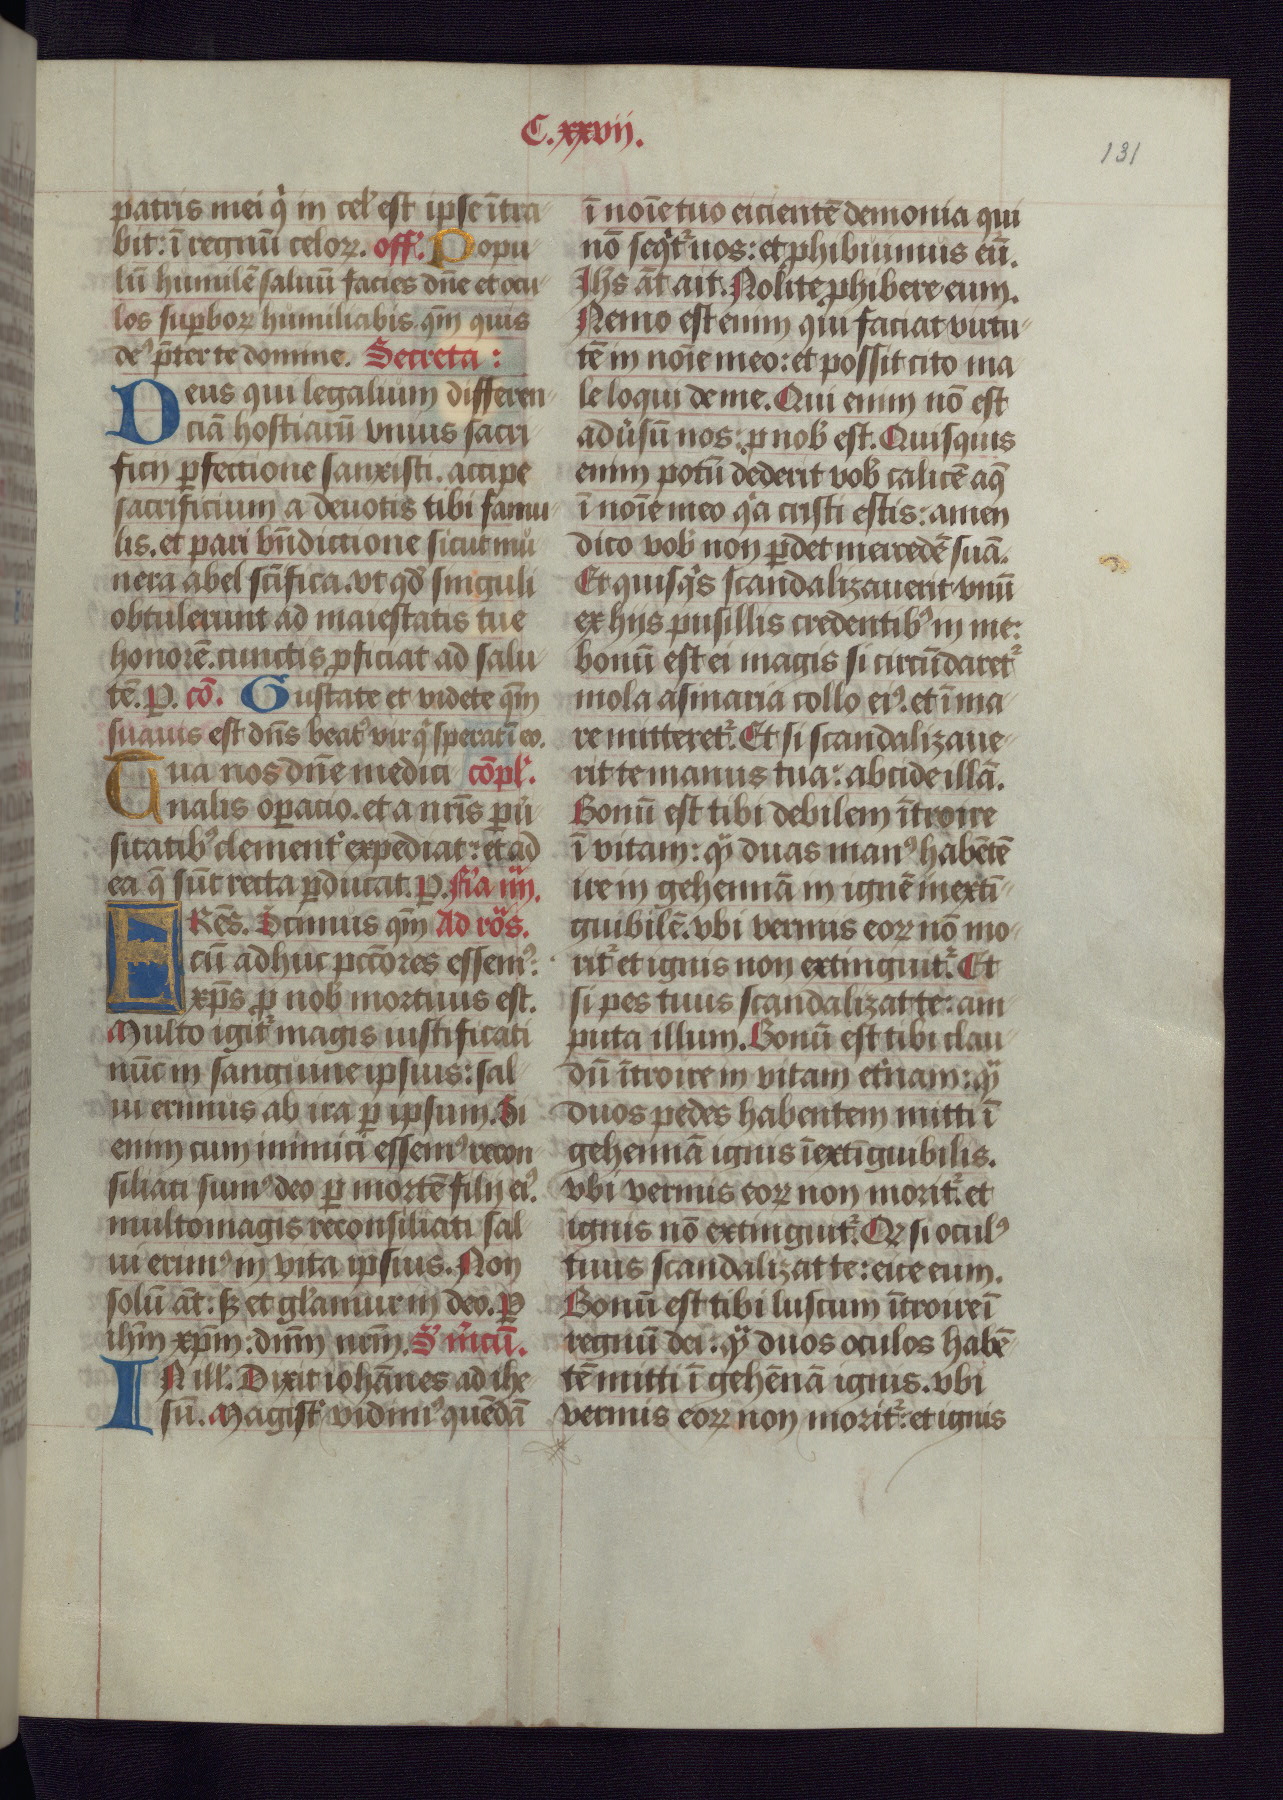 C.xxvij.
131
patris mei q̇ in cel' est ipse ītra
bit: ī regnū celoꝝ. off'. Popu
lū humilē saluū facies dn̄e et ocu
los suꝑboꝝ humiliabis qm̄ quis
deꝰ p̄ter te domine. Secreta:
Deus qui legalium differen
ciā hostiarū vnius sacri
ficij ꝑfectione sanxisti. accipe
sacrificium a deuotis tibi famu
lis. et pari bn̄dictione sicut mu
nera abel sc̄ifica. vt qd̄ singuli
obtulerunt ad maiestatis tue
honorē. cunctis ꝓficiat ad salu
tē. P. cō. Gustate et videte qm̄
suauis est dn̄s beatꝰ vir q̇ sperat ī eo.
Tua nos dn̄e medici cōpl'.
nalis oꝑacio. et a nr̄is ꝑu
sitatibꝰ clement' expediat: et ad
ea q̄ sūt recta ꝑducat. P. Fr'a iiij.
FRēs. Scimus qm̄ Ad rōs.
cū adhuc pctōres essemꝰ:
xp̄s ꝓ nob' mortuus est.
Multo igit᷑ magis iustificati
nūc in sanguine ipsius: sal
ui erimus ab ira ꝑ ipsum. Si
enim cum inimici essemꝰ recon
siliati sumꝰ deo ꝑ mortē filij eiꝰ.
multomagis reconsiliati sal
ui erimꝰ in vita ipsius. Non
solū āt: sꝫ et gl'amur in deo. ꝑ
ihm̄ xp̄m: dnm̄ nrm̄. S' m'cū.
IN ill'. Dixit iohānes ad ihe
sū. Magist' vidimꝰ quēdā
ī noīe tuo eicientē demonia qui
nō seq̇t᷑ nos: et ꝓhibuimus eū.
Ihs āt ait. Nolite ꝓhibere eum.
Nemo est enim qui faciat virtu
tē in noīe meo: et possit cito ma
le loqui de me. Qui enim nō est
adu'sū nos: ꝓ nob' est. Quisquis
enim potū dederit vob' calicē aq̄
ī noīe meo q'a cristi estis: amen
dico vob' non ꝑdet mercedē suā.
Et quisq's scandalizauerit vnū
ex hijs pusillis credentibꝰ in me:
bonū est ei magis si circūdaret᷑
mola asinaria collo eiꝰ. et ī ma
re mitteret᷑. Et si scandalizaue
rit te manus tua: abcide illā.
Bonū est tibi debilem ītroire
ī vitam: q̈ duas manꝰ habētē
ire in gehennā in ignē inextī
guibilē. vbi vermis eoꝝ nō mo
rit᷑ et ignis non extinguit᷑. Et
si pes tuus scandalizat te: am
puta illum. Bonū est tibi clau
dū ītroire in vitam et'nam: q̈
duos pedes habentem mitti ī
gehennā ignis īextīguibilis.
vbi vermis eoꝝ non morit᷑. et
ignis nō extinguit᷑. Qꝫ si oculꝰ
tuus scandalizat te: eice eum.
Bonū est tibi luscum ītroire ī
regnū dei: q̈ duos oculos habē
tē mitti ī gehēnā ignis. vbi
vermis eoꝝ non morit᷑: et ignis